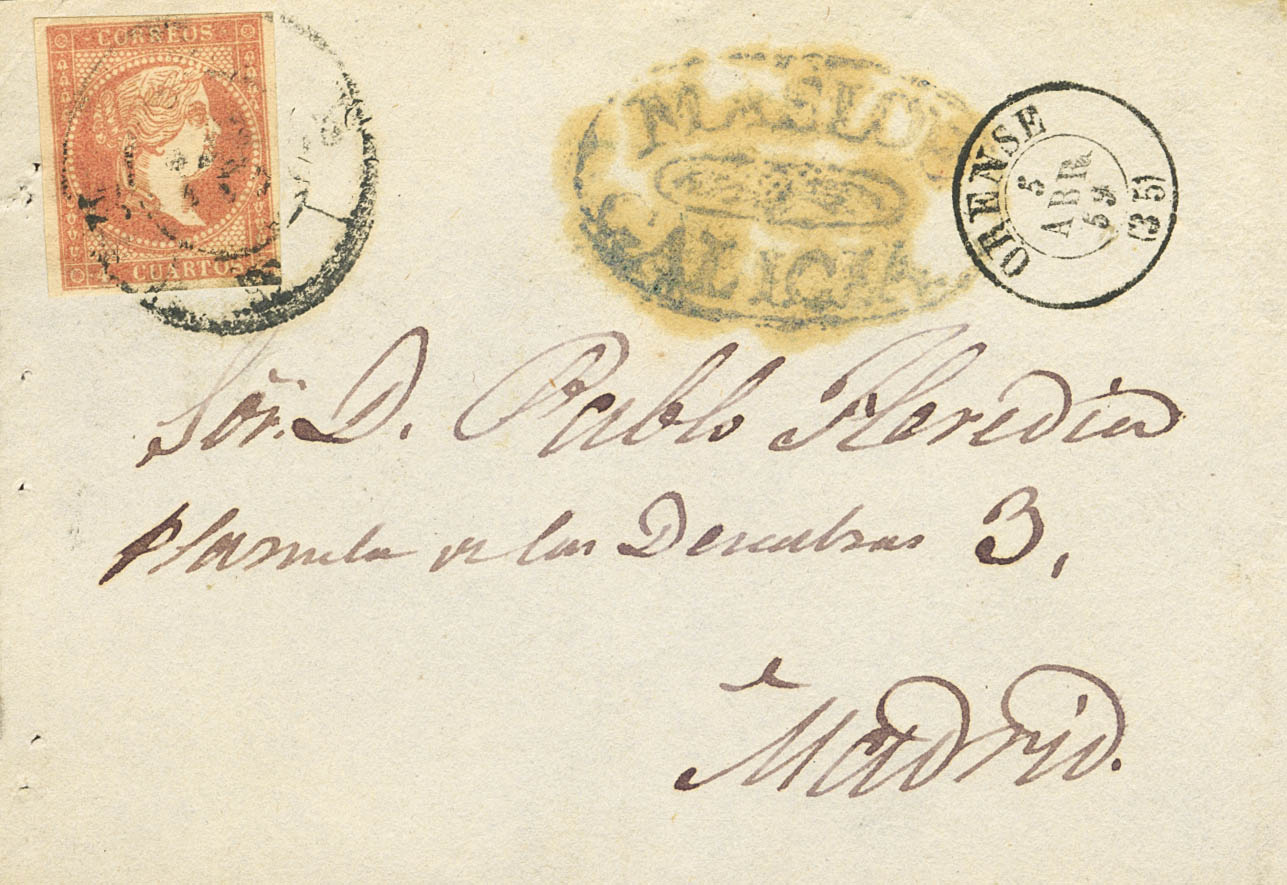 CORREOS
4 CUARTOS
MASIDE
GALICIA
ORENSE
5
ABR
59
(35)
Sôr. D. Pablo Heredia
Plazuela de las Descalzas 3,
Madrid.